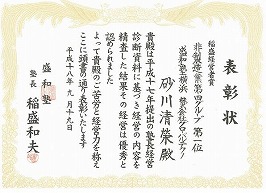 表彰状
稲盛経営者賞
非製造業第四グループ 第一位
盛和塾横浜
砂川清榮殿
貴殿は平成十七年提出の塾長経営
診断資料に基づき経営の内容を
精査した結果その経営は優秀と
認められました
よって貴殿のご苦労と経営力を称え
ここに頭書の通り表彰いたします
平成十八年九月十九日
盛和塾
塾長 稲盛和夫